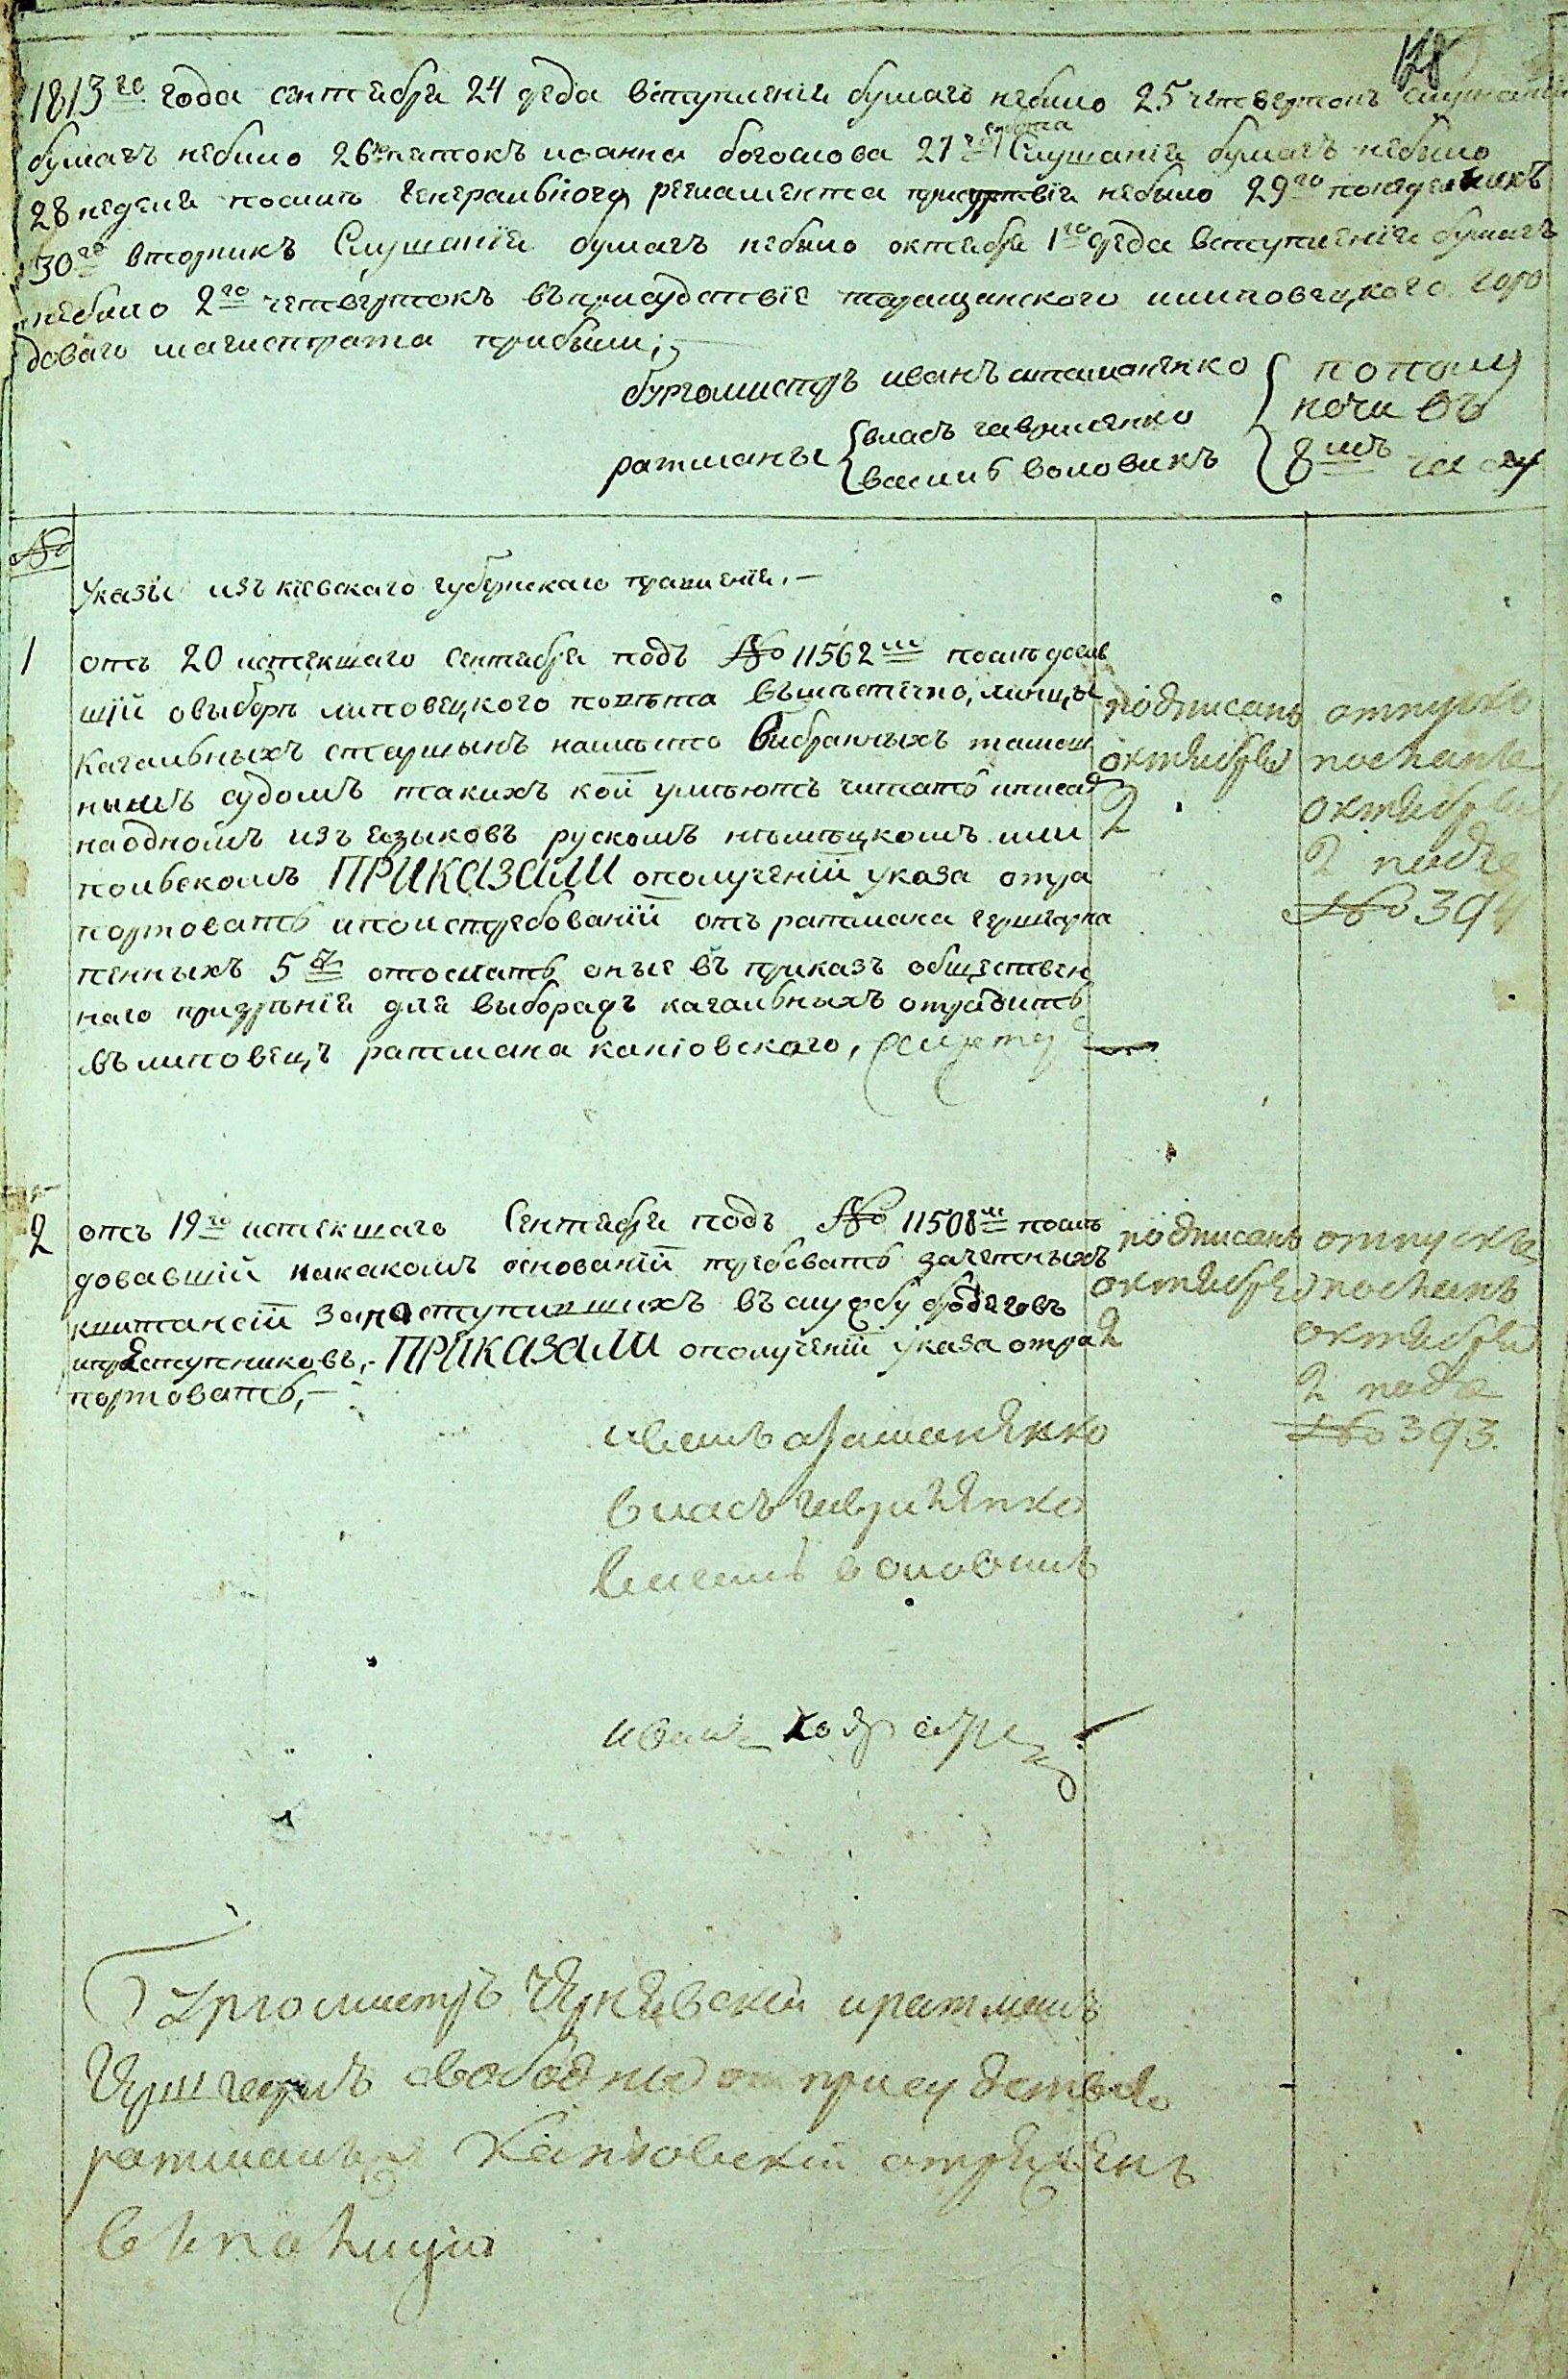 128
1813го года сентября 24 среда вступления бумагъ небыло 25 четвертокъ слушания
бумагъ небыло 26го пятокъ иоанна богослова 27го субота Слушания бумагъ небыло
28 неделя посилѣ генерального регламента присутствия небыло 29го понедельникъ
30го вторникъ Слушания бумагъ небыло октября 1го среда вступления бумагъ
небыло 2го четвертокъ въ присудствіе таращанского илиповецкого горо
доваго магистрата прибыли;
бургомистръ иванъ атаманенко
ратманы власъ гавриленко
василь воловикъ
пополу
ночи въ
8мъ часу
№
Указы изъ кіевскаго губернскаго правленія.
1
отъ 20 истекшаго Сентября подъ № 11562м последовав
шій овыборѣ липовецкого повѣта въмѣстечко, линцы
кагальныхъ старшынъ намѣсто выбранныхъ тамош
нымъ судомъ такихъ кои умѣютъ читать иписать
наодномъ изъ языковъ рускомъ нѣмѣцкомъ или
польскомъ ПРИКАЗАЛИ ополученіи указа отра
портовать ипоистребованіи отъ ратмана гершгорна
пенныхъ 5 р отослать оные въ приказъ обществен
наго призрѣнія для выборадъ кагальныхъ отрядить
въ липовецъ ратмана каніовского,
подписано
октября
2
отпускъ
посланъ
октября
2 подъ
№ 394
2
отъ 19го истекшаго Сентября подъ № 11508м послѣ
довавшій накакомъ основаніи требовать зачетныхъ
квитансіи запоступившихъ въ службу бродяговъ
ипреступниковъ, ПРИКАЗАЛИ ополученіи указа отра
портовать,
подписано
октября
2
отпускъ
посланъ
октября
2 подъ
№ 393.
иванъ атаманенко
власъ гавриленко
василь воловикъ
иванъ
Бургомистръ Чернявскій иратманъ
Гершгорнъ свободны отприсудствія
ратманъ Каніовскій отряженъ
вкполиции